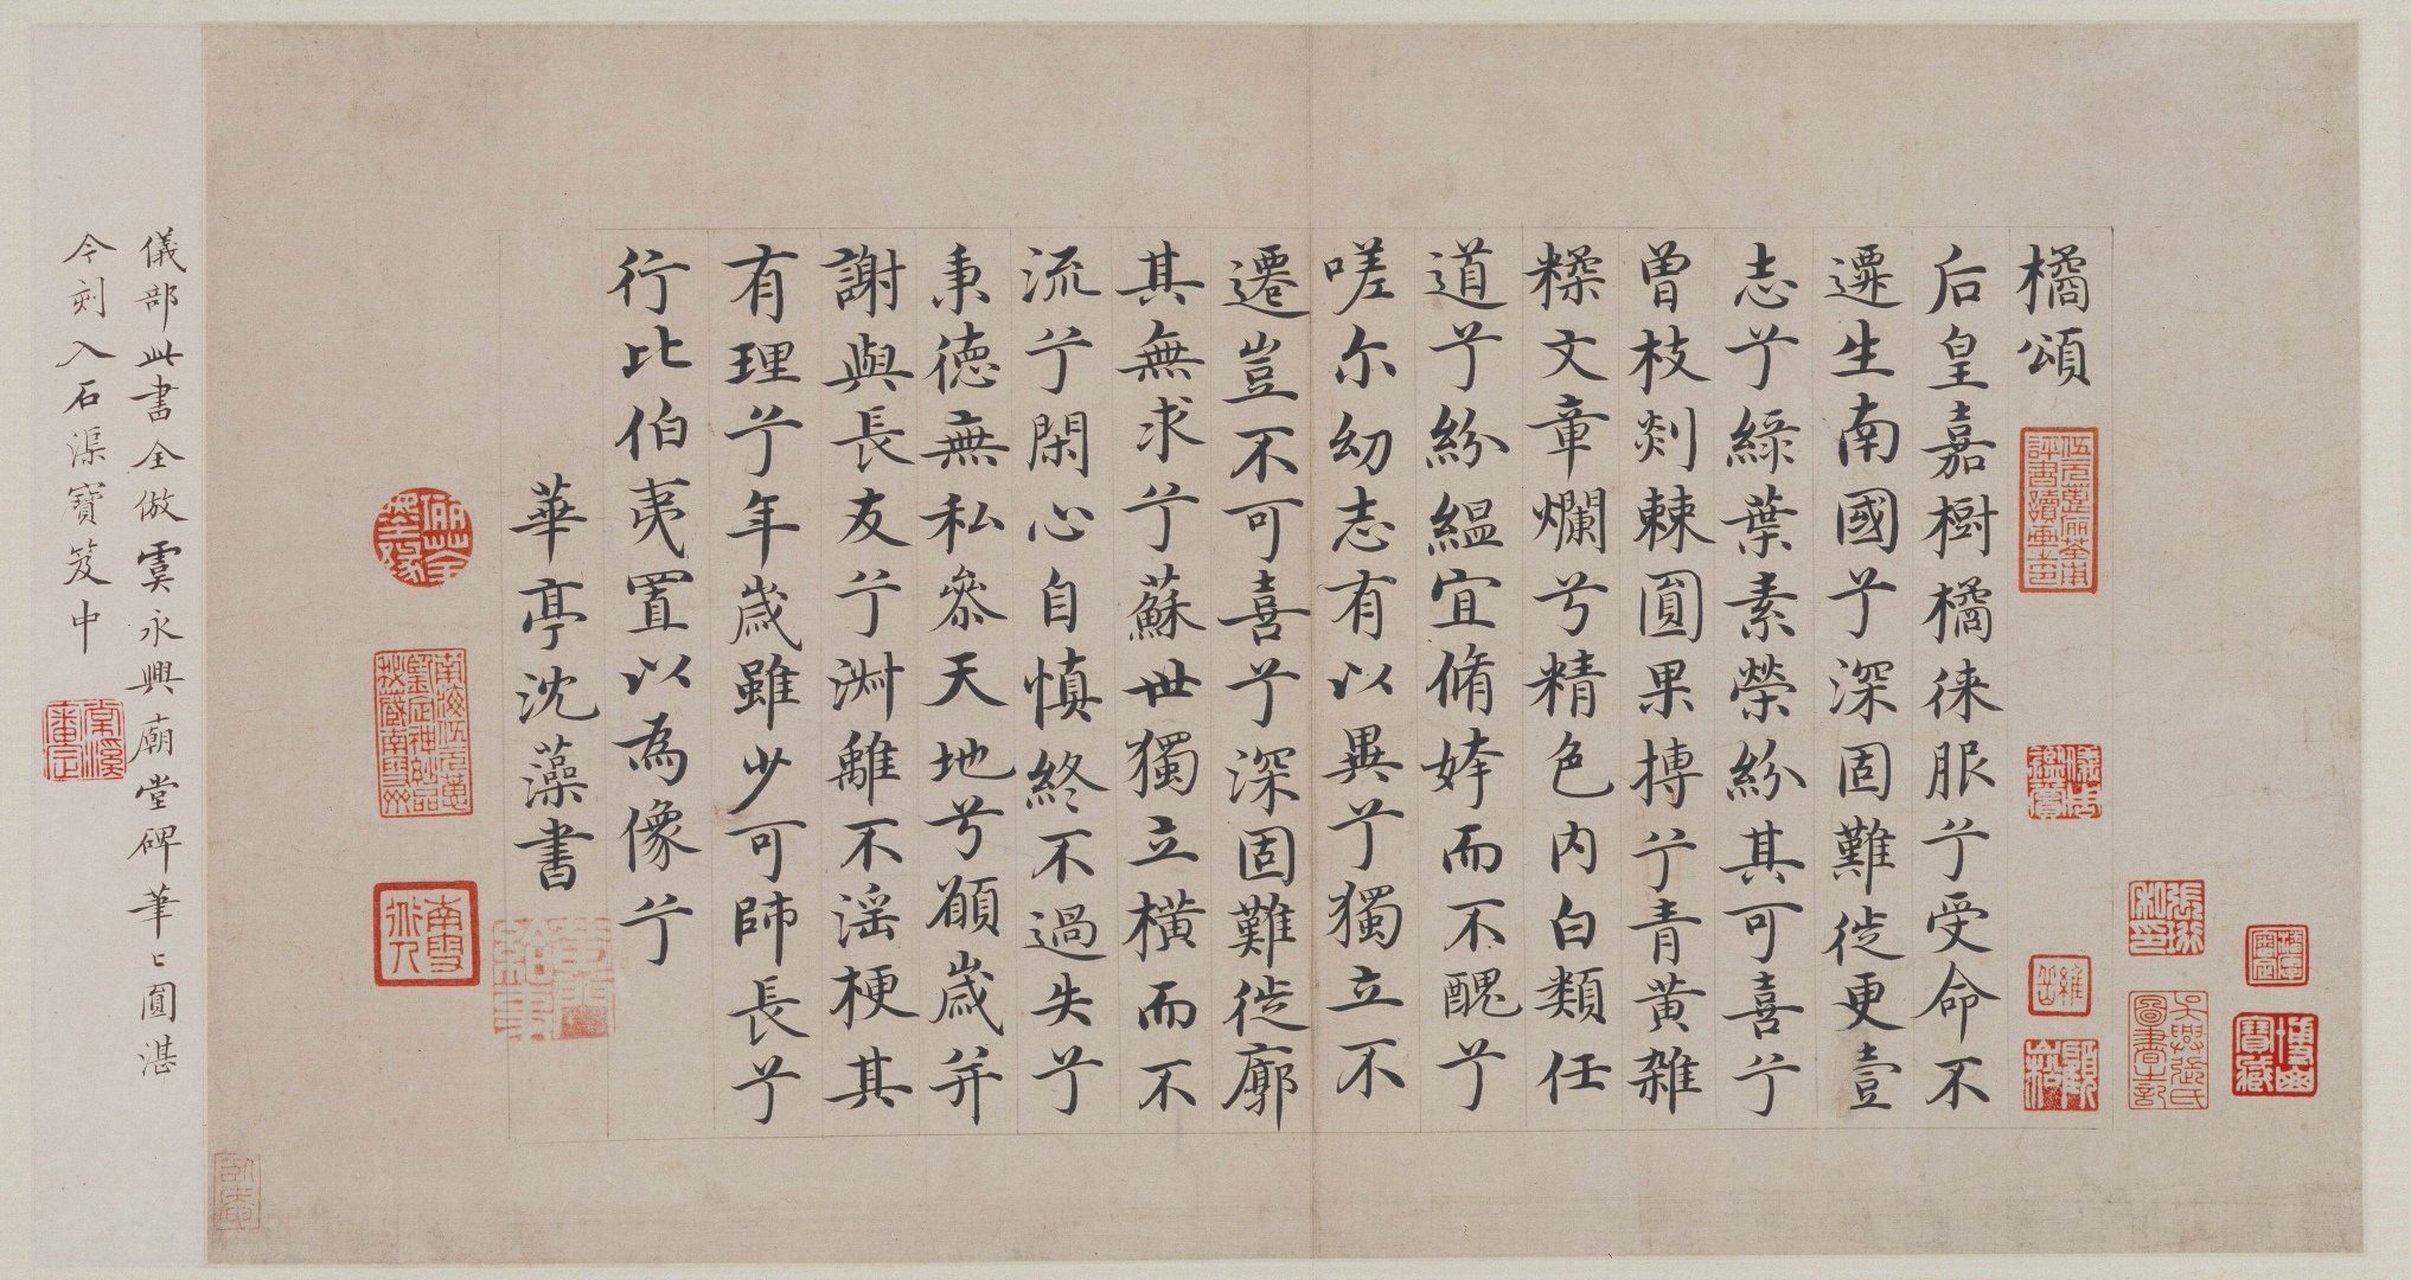 橘頌
后皇嘉樹橘徕服兮受命不
遷生南國兮深固難徙更壹
志兮綠葉素榮紛其可喜兮
曾枝剡棘圓果摶兮青黃雜
糅文章爛兮精色內白類任
道兮紛緼宜脩姱而不醜兮
嗟尔幼志有以異兮獨立不
遷豈不可喜兮深固難徙廓
其無求兮蘇世獨立橫而不
流兮閑心自慎終不過失兮
秉德無私叅天地兮願歲并
謝與長友兮淵離不淫梗其
有理兮年歲雖少可師長兮
行比伯夷置以為像兮
華亭沈藻書
儀部此書全倣虞永興廟堂碑筆〻圓湛
今刻入石渠寶笈中